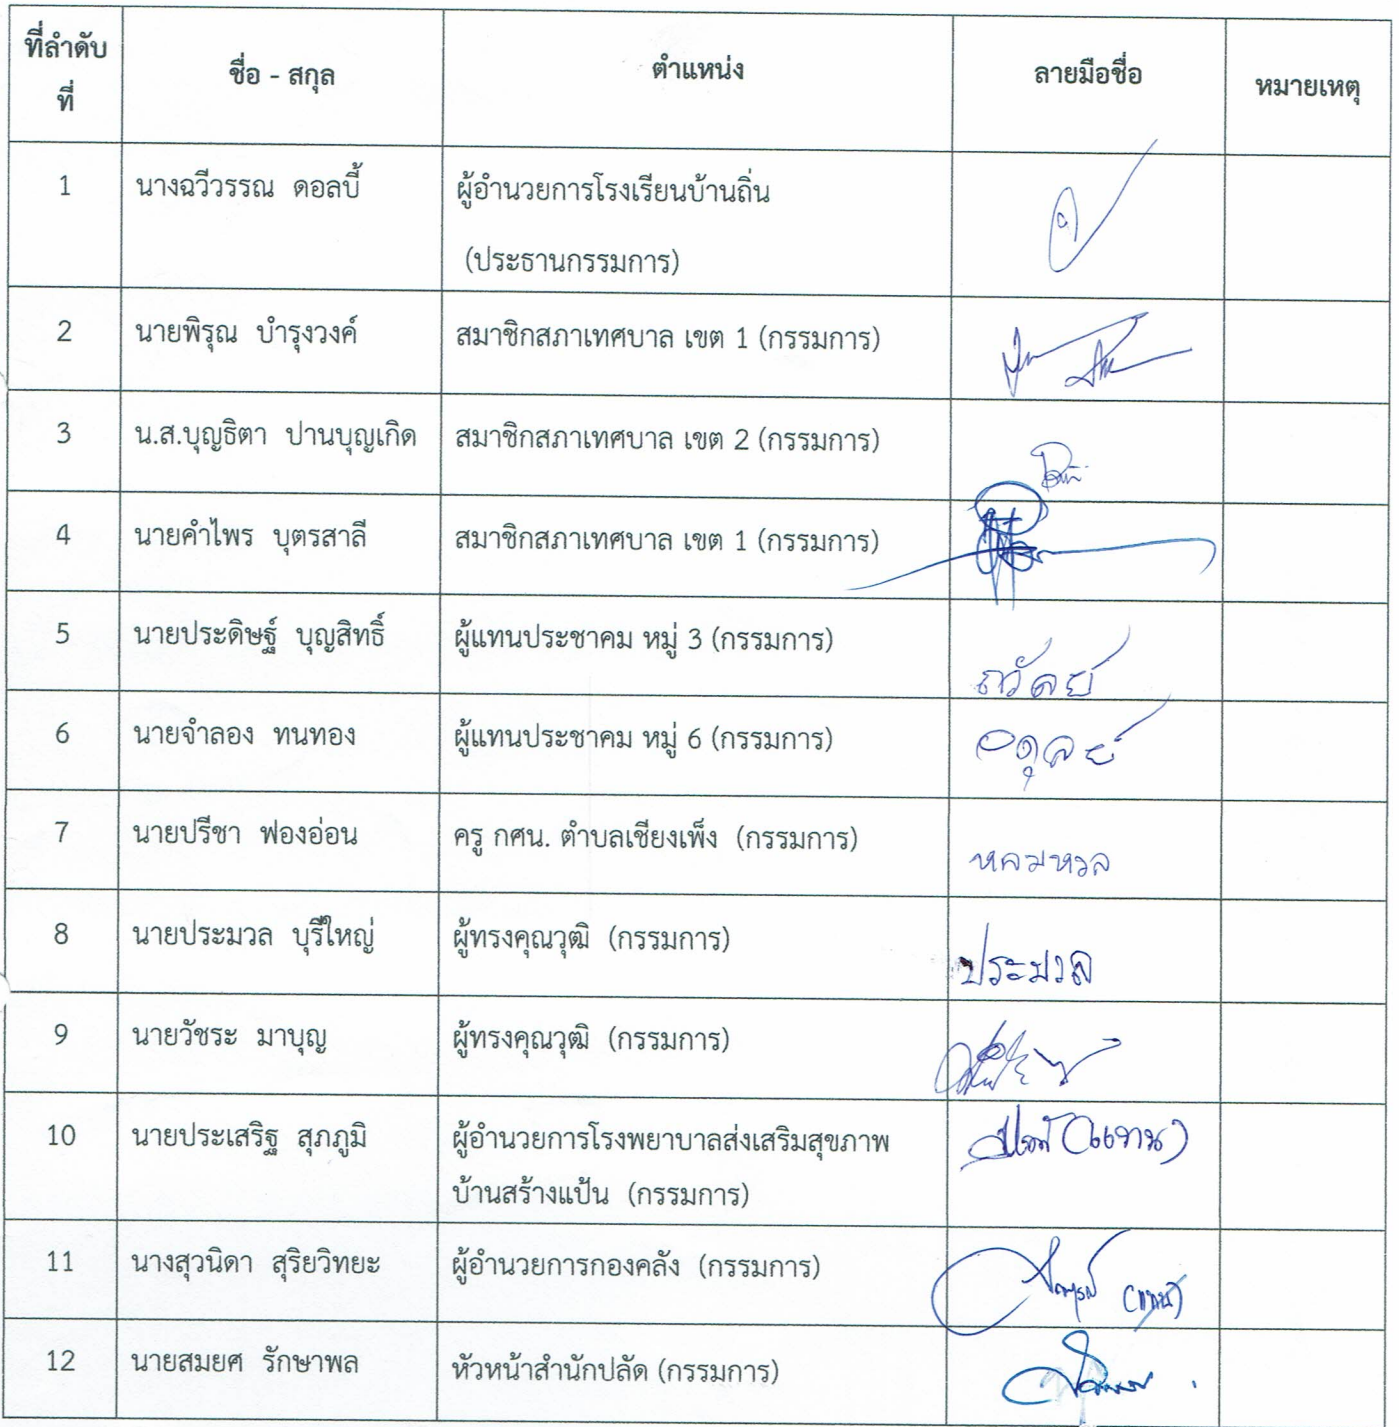 ที่ลำดับ
ที่
ชื่อ - สกุล
ตำแหน่ง
ลายมือชื่อ
หมายเหตุ
1 นางฉวีวรรณ ดอลบี้ ผู้อำนวยการโรงเรียนบ้านถิ่น
(ประธานกรรมการ)
2 นายพิรุณ บำรุงวงค์ สมาชิกสภาเทศบาล เขต 1 (กรรมการ)
3 น.ส.บุญธิตา ปานบุญเกิด สมาชิกสภาเทศบาล เขต 2 (กรรมการ)
4 นายคำไพร บุตรสาลี สมาชิกสภาเทศบาล เขต 1 (กรรมการ)
5 นายประดิษฐ์ บุญสิทธิ์ ผู้แทนประชาคม หมู่ 3 (กรรมการ) ถวัลย์
6 นายจำลอง ทนทอง ผู้แทนประชาคม หมู่ 6 (กรรมการ) อดุลย์
7 นายปรีชา ฟองอ่อน ครู กศน. ตำบลเชียงเพ็ง (กรรมการ)
8 นายประมวล บุรีใหญ่ ผู้ทรงคุณวุฒิ (กรรมการ) ประมวล
9 นายวัชระ มาบุญ ผู้ทรงคุณวุฒิ (กรรมการ)
10 นายประเสริฐ สุภภูมิ ผู้อำนวยการโรงพยาบาลส่งเสริมสุขภาพ (แทน)
บ้านสร้างแป้น (กรรมการ)
11 นางสุวนิดา สุริยวิทยะ ผู้อำนวยการกองคลัง (กรรมการ) (แทน)
12 นายสมยศ รักษาพล หัวหน้าสำนักปลัด (กรรมการ)